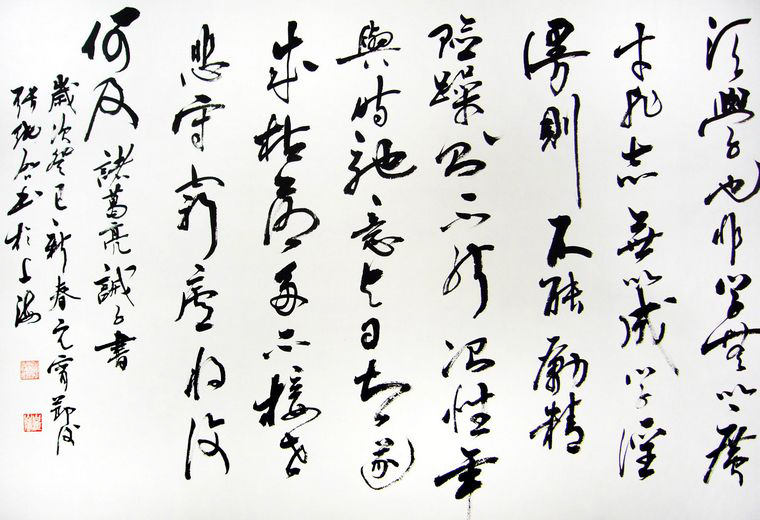 須學也非學無以廣
才非志無以成學淫
漫則不能勵精
險躁則不能治性年
與時馳意與日去遂
成枯落多不接世
悲守窮廬將復
何及 諸葛亮誡子書
歲次癸巳新春元宵節後
書於上海